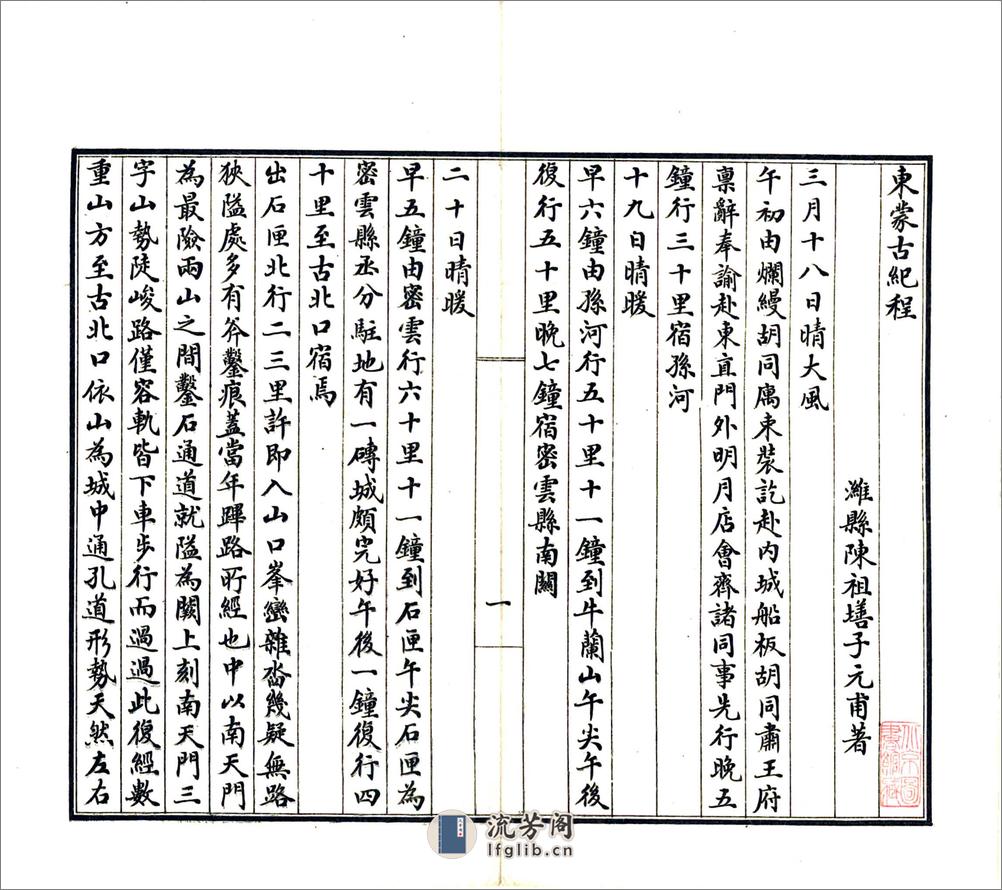 東蒙古紀程
濰縣陳祖墡子元甫著
三月十八日晴大風
午初由爛縵胡同寓束裝訖赴內城船板胡同肅王府
稟辭奉諭赴東直門外明月店會齊諸同事先行晚五
鐘行三十里宿孫河
十九日晴暖
早六鐘由孫河行五十里十一鐘到牛蘭山午尖午後
復行五十里晚七鐘宿密雲縣南關
一
二十日晴暖
早五鐘由密雲行六十里十一鐘到石匣午尖石匣為
密雲縣丞分駐地有一磚城頗完好午後一鐘復行四
十里至古北口宿焉
出石匣北行二三里許即入山口峯巒雜沓幾疑無路
狹隘處多有斧鑿痕蓋當年蹕路所經也中以南天門
為最險兩山之間鑿石通道就隘為闕上刻南天門三
字山勢陡峻路僅容軌皆下車步行而過過此復經數
重山方至古北口依山為城中通孔道形勢天然左右
流芳阁
lfglib.cn